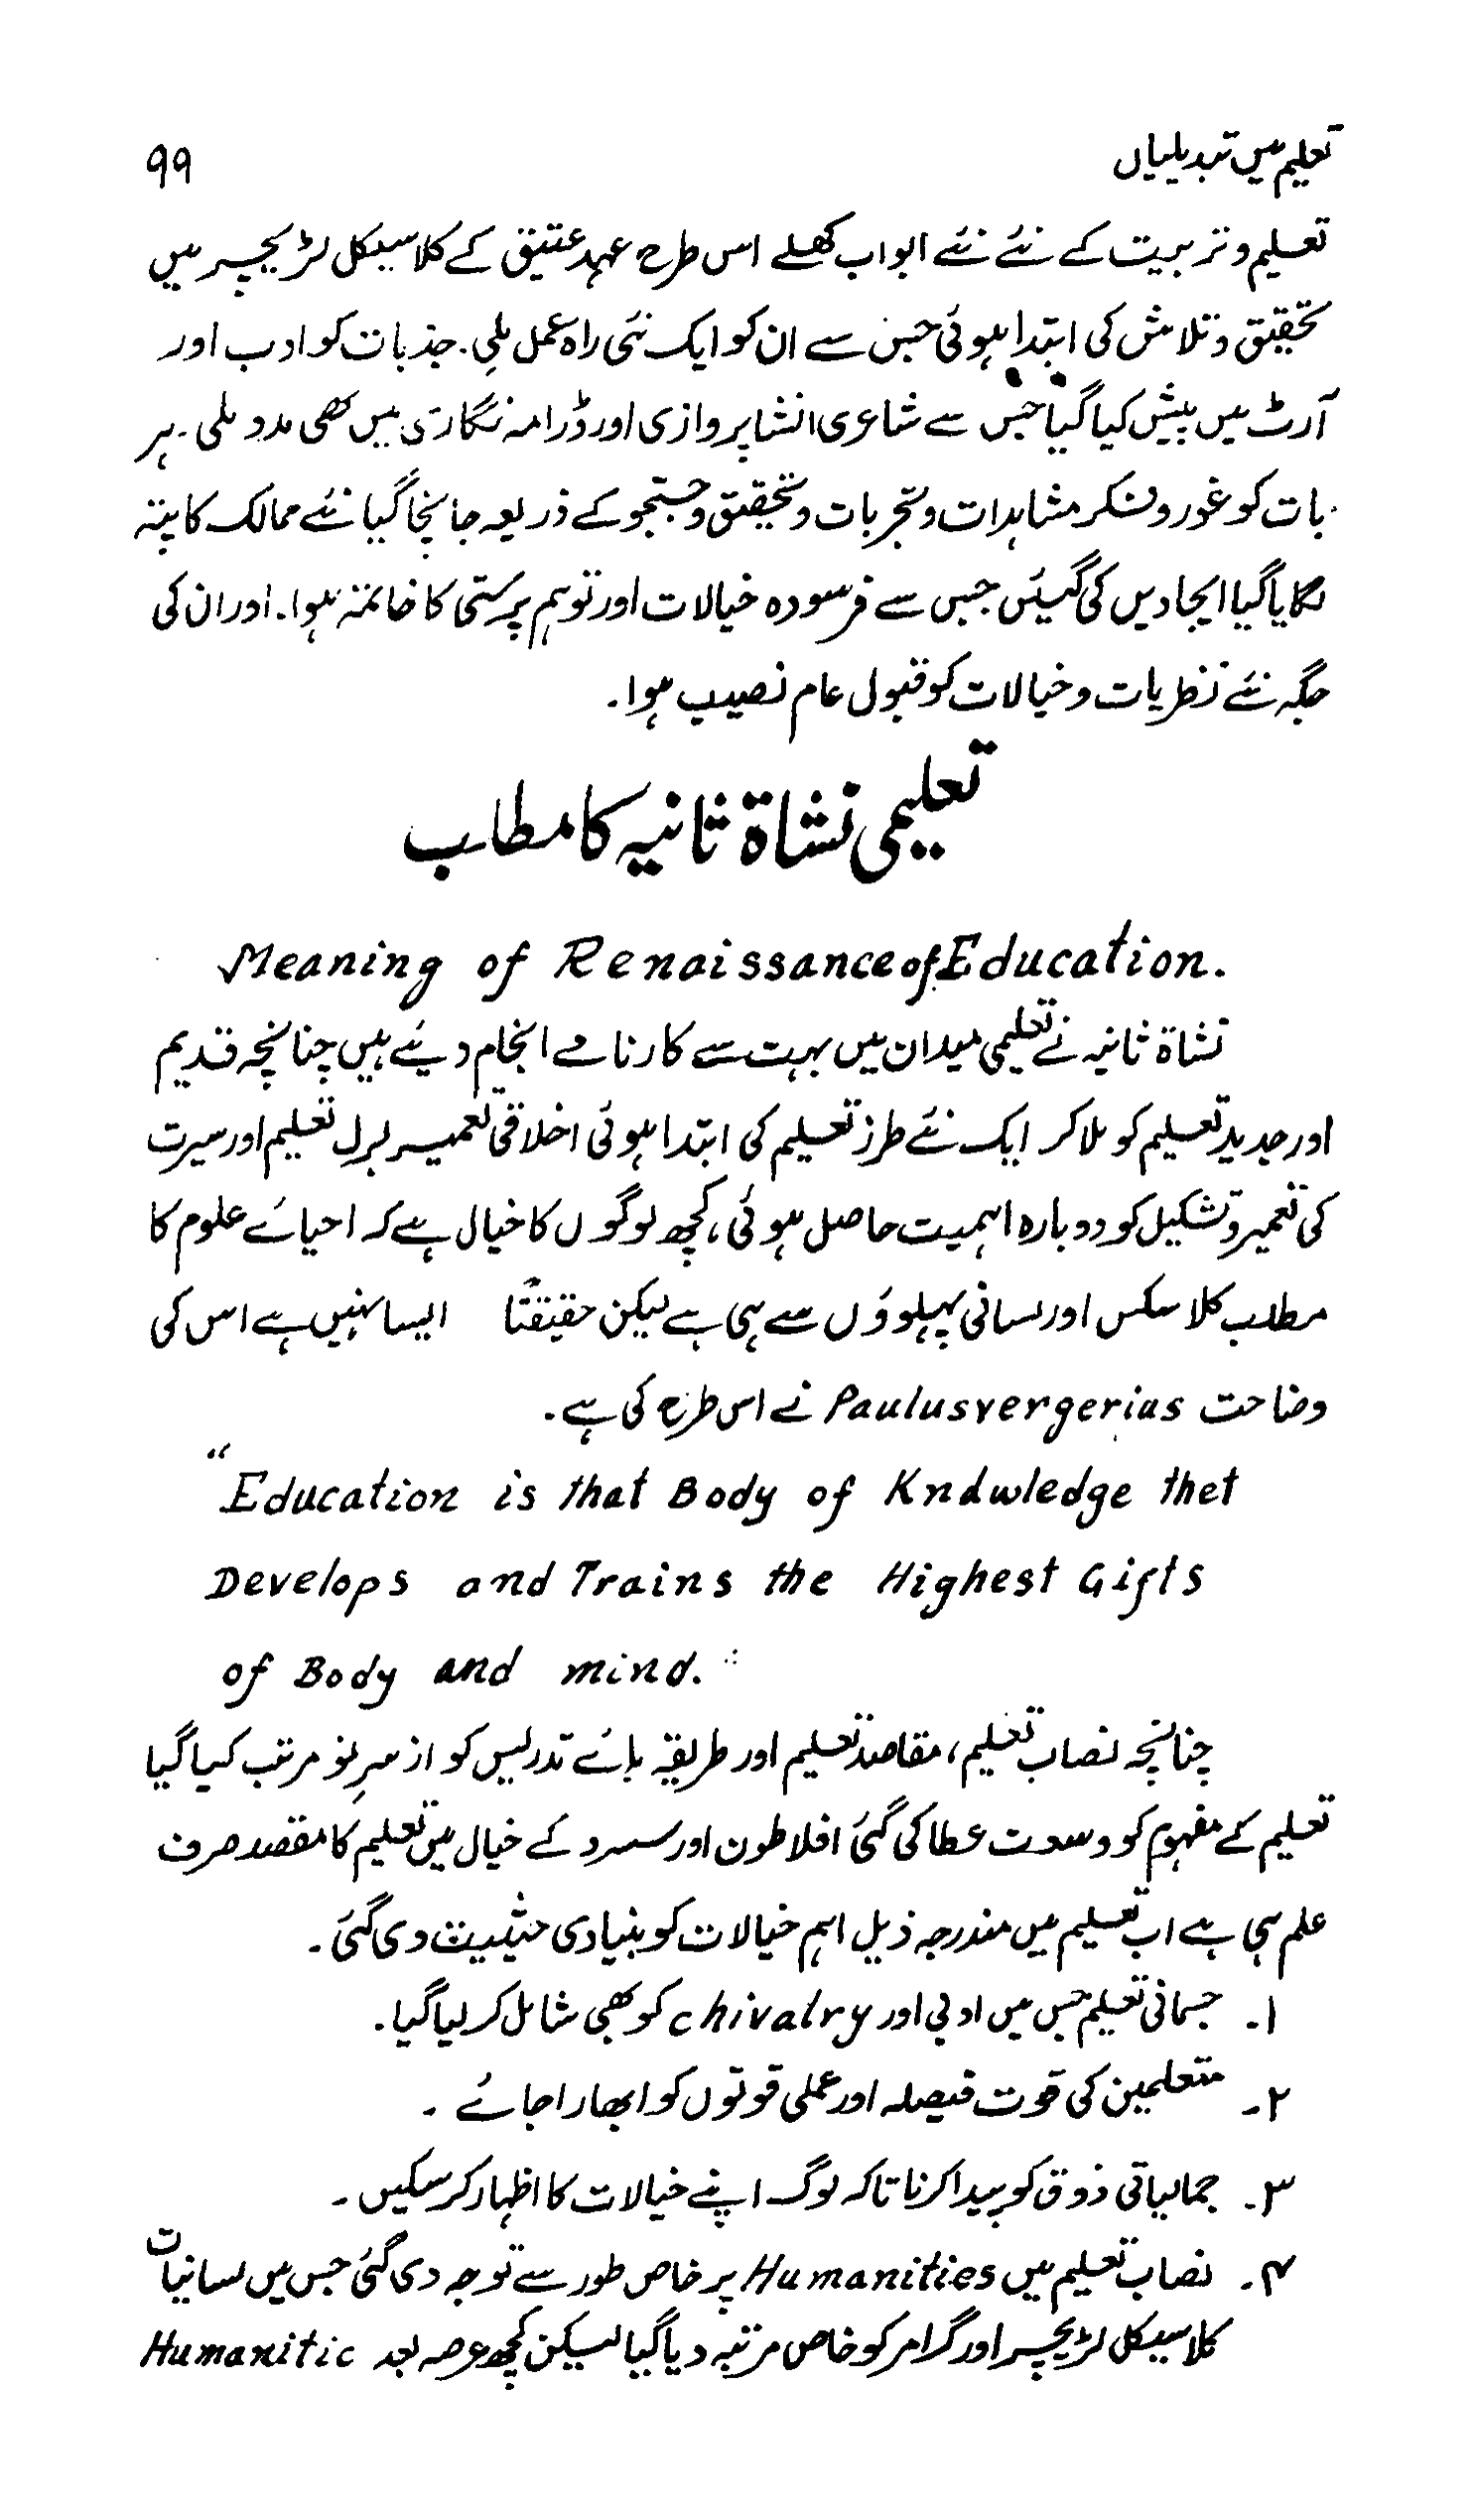 تعلیم میں تبدیلیاں ۹۹
تعلیم و تربیت کے نئے نئے ابواب کھلے اس طرح عہد عتیق کے کلاسیکل لٹریچر میں
تحقیق و تلاش کی ابتدا ہوئی جس سے ان کو ایک نئی راہ عمل ملی۔ جذبات کو ادب اور
آرٹ میں پیش کیا گیا جس سے شاعری انشا پروازی اور ڈرامہ نگاری میں بھی مدد ملی۔ ہر
بات کو غور و فکر مشاہدات و تجربات و تحقیق و جستجو کے ذریعہ جانچا گیا نئے ممالک کا پتہ
لگایا گیا ایجادیں کی گئیں جس سے فرسودہ خیالات اور توہم پرستی کا خاتمہ ہوا۔ اور ان کی
جگہ نئے نظریات و خیالات کو قبول عام نصیب ہوا۔
تعلیمی نشاۃ ثانیہ کا مطلب
Meaning of Renaissance of Education.
نشاۃ ثانیہ نے تعلیمی میدان میں بہت سے کارنامے انجام دیئے ہیں چنانچہ قدیم
اور جدید تعلیم کو ملا کر ایک نئے طرز تعلیم کی ابتدا ہوئی اخلاقی تعمیر لبرل تعلیم اور سیرت
کی تعمیر و تشکیل کو دوبارہ اہمیت حاصل ہوئی، کچھ لوگوں کا خیال ہے کہ احیائے علوم کا
مطلب کلاسکس اور لسانی پہلوؤں سے ہی ہے لیکن حقیقتًا ایسا نہیں ہے اس کی
وضاحت Paulusvergerias نے اس طرح کی ہے۔
“Education is that Body of Kndwledge thet
Develops and Trains the Highest Gifts
of Body and mind.”
چنانچہ نصاب تعلیم، مقاصد تعلیم اور طریقہ ہائے تدریس کو از سرِنو مرتب کیا گیا
تعلیم کے مفہوم کو وسعت عطا کی گئی افلاطون اور سسرد کے خیال میں تعلیم کا مقصد صرف
علم ہی ہے اب تعلیم میں مندرجہ ذیل اہم خیالات کو بنیادی حیثیت دی گئی۔
۱۔ جسمانی تعلیم جس میں ادبی اور chivalry کو بھی شامل کر لیا گیا۔
۲۔ متعلمین کی قوت فیصلہ اور عملی قوتوں کو ابھارا جائے۔
۳۔ جمالیاتی ذوق کو پیدا کرنا تاکہ لوگ اپنے خیالات کا اظہار کر سکیں۔
۴۔ نصاب تعلیم میں Humanities پر خاص طور سے توجہ دی گئی جس میں لسانیات
کلاسیکل لٹریچر اور گرامر کو خاص مرتبہ دیا گیا لیکن کچھ عرصہ بعد Humanitic